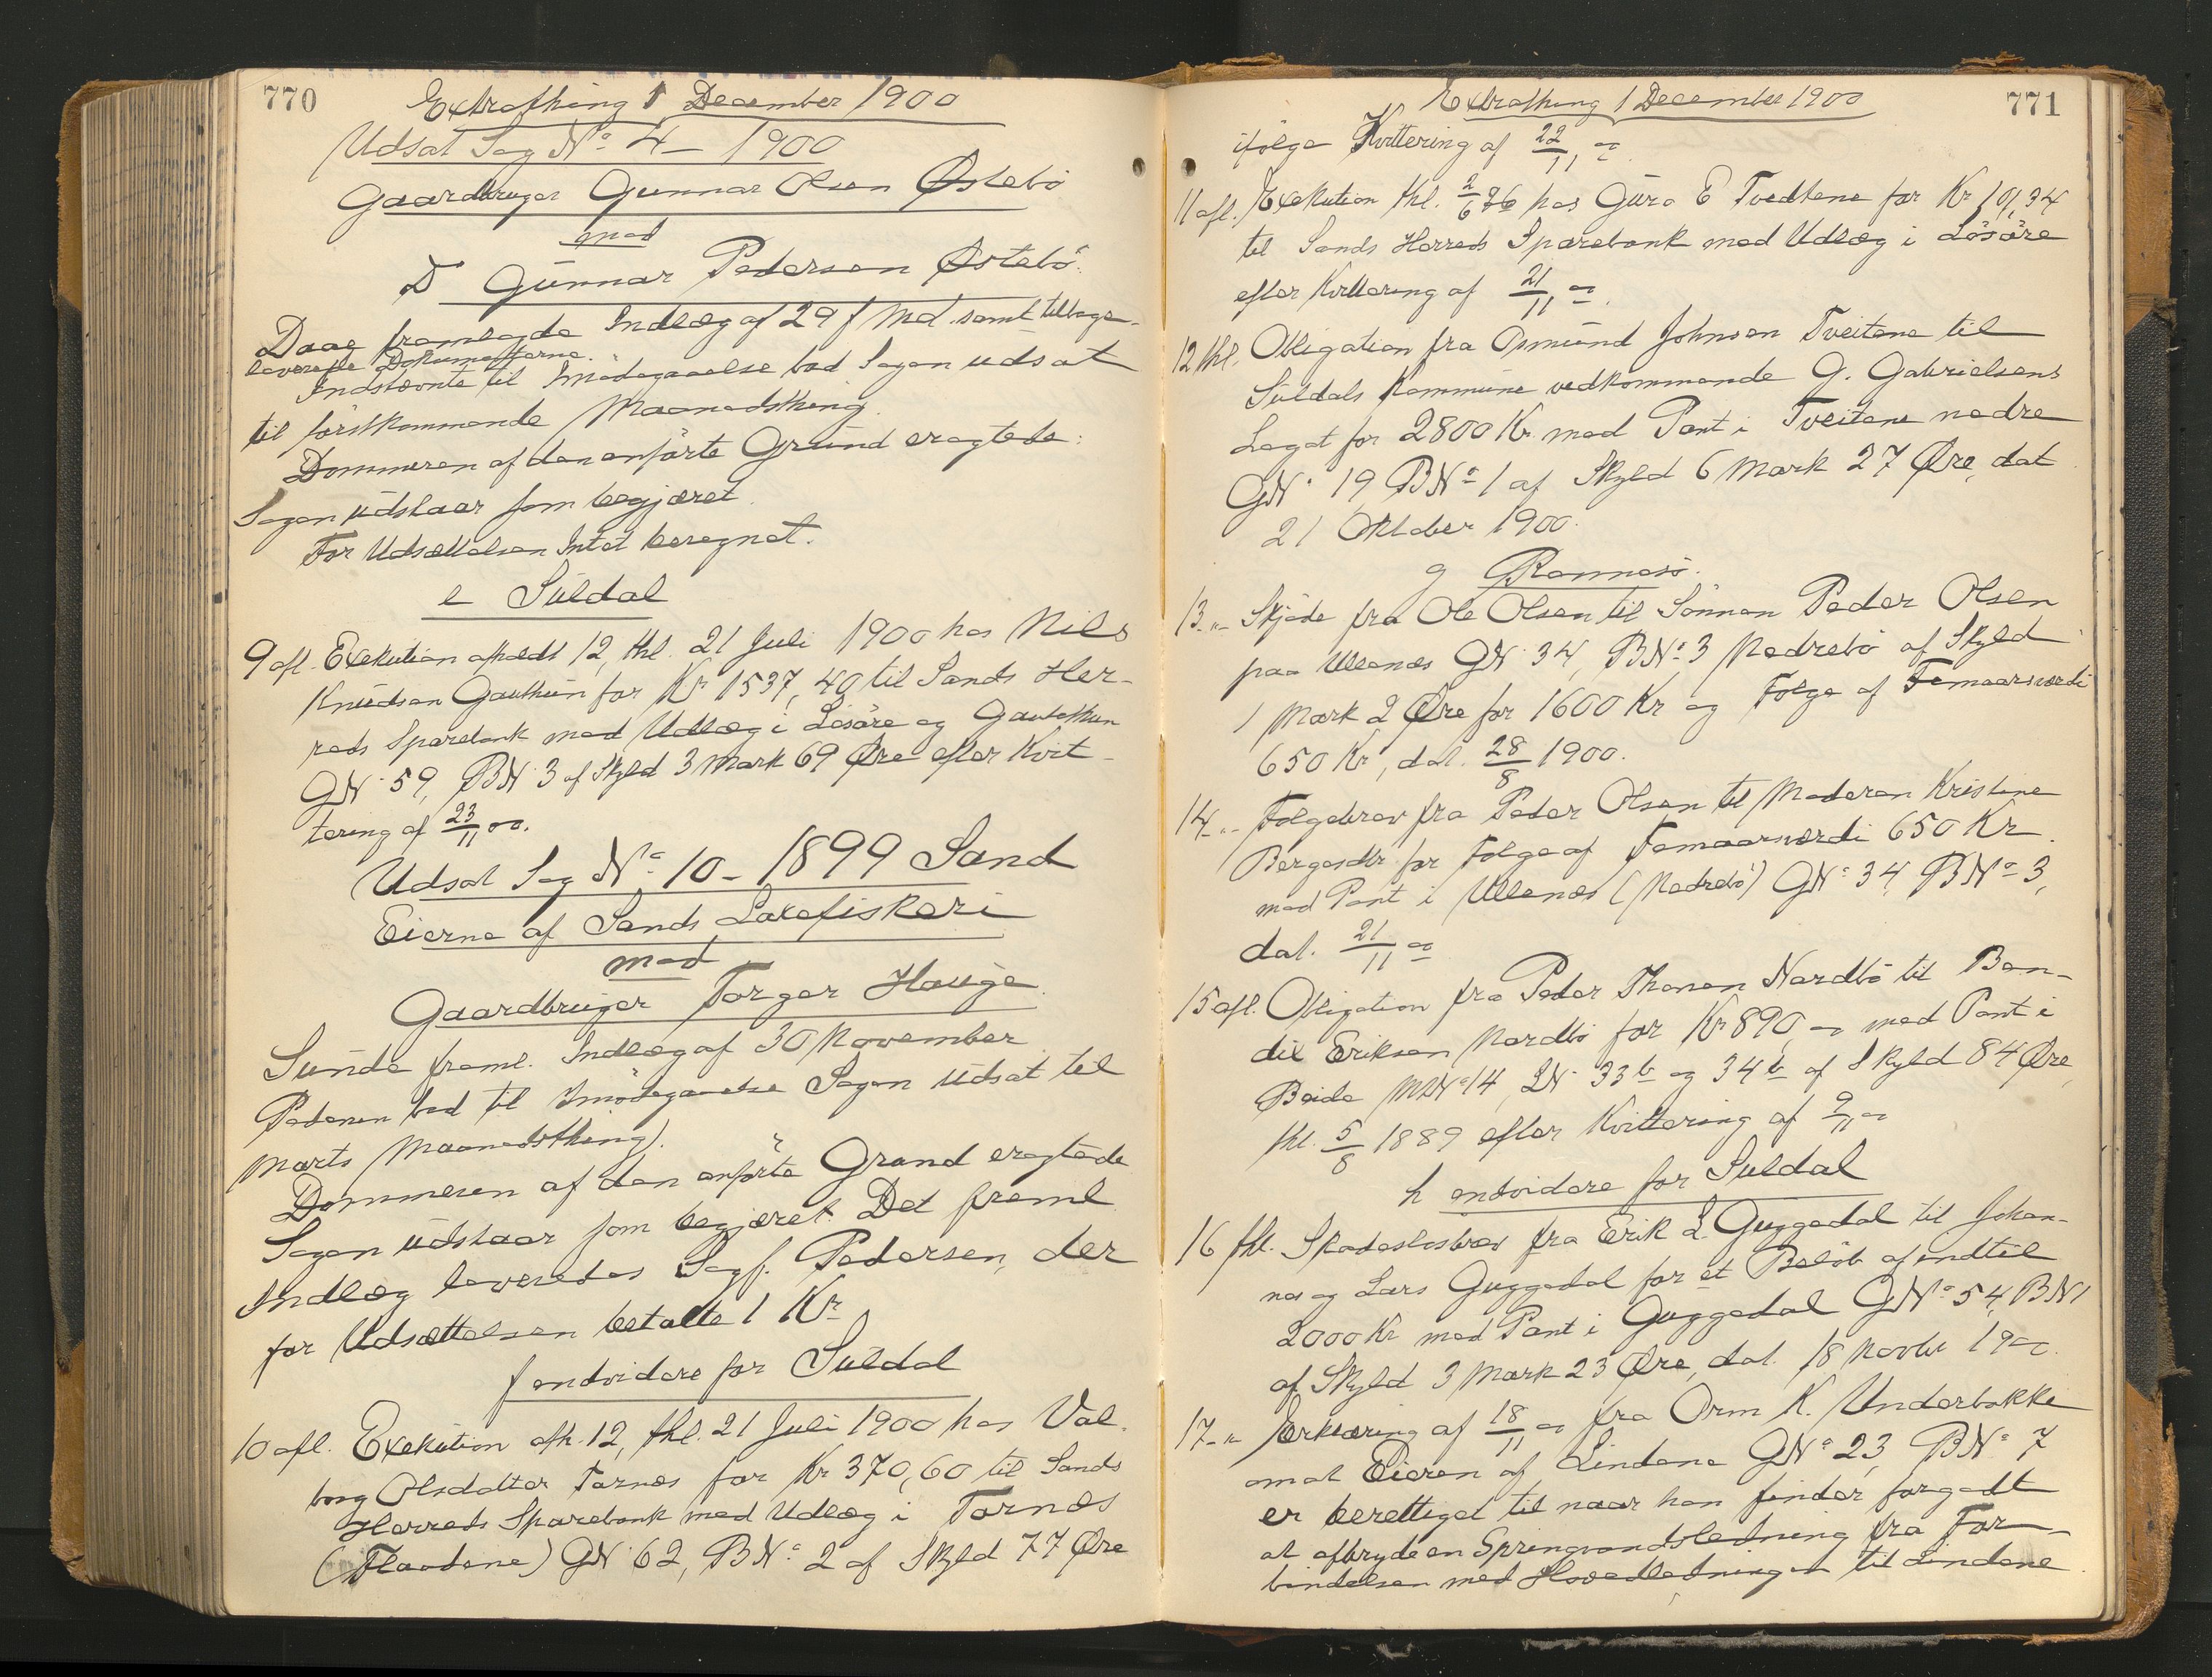 770
Extrathing 1 December 1900
Udsat Sag No 4 - 1900
Gaardbruger Gunnar Olsen Østebö
mod
Do Gunnar Pedersen Østebö.
Daae fremlagde Indlæg af 29 f Md. samt tilbage-
leverede Dokumenterne.
Indstævnte til Imødegaaelse bad Sagen udsat
til förstkommende Maanedsthing.
Dommeren af den anförte Grund eragtede:
Sagen udstaar som begjæret.
For Udsættelsen Intet beregnet.
e Suldal
9 afl. Exekution afholdt 12, thl. 21 Juli 1900 hos Nils
Knudsen Gauthun for Kr 1537,40 til Sands Her-
reds Sparebank med Udlæg i Lösöre og Gautethun
GN. 59, BN. 3 af Skyld 3 Mark 69 Øre efter Kvit-
tering af 23/11 00.
Udsat Sag No 10 - 1899 Sand
Eierne af Sands Laxefiskeri
mod
Gaardbruger Torger Hauge.
Sunde freml. Indlæg af 30 November
Pedersen bad til Imödegaaelse Sagen udsat til
Marts Maanedsthing).
Dommeren af den anförte Grund eragtede
Sagen udstaar som begjæret. Det freml.
Indlæg leveredes Sagf. Pedersen, der
for Udsættelsen betalte 1 Kr.
f endvidere for Suldal
10 afl. Exekution afh. 12, thl. 21 Juli 1900 hos Val-
borg Olsdatter Tornes for Kr 370,60 til Sands
Herreds Sparebank med Udlæg i Tornes
(Flaadene) GN. 62, BNo. 2 af Skyld 77 Øre
771
Extrathing 1 December 1900
ifölge Kvittering af 22/11 00.
11 afl. Exekution thl. 2/6 76 hos Guro E Tvedtene for Kr 101,34
til Sands Herreds Sparebank med Udlæg i Lösöre
efter Kvittering af 21/11 00.
12 thl. Obligation fra Osmund Johnsen Tveitene til
Suldals Kommune vedkommende G. Gabrielsens
Legat for 2800 Kr. med Pant i Tveitene nedre
GN. 19 BNo 1 af Skyld 6 Mark 27 Øre, dat
21 Oktober 1900.
g
13 -"- Skjöde fra Ole Olsen til Sönnen Peder Olsen
paa Ullenes GN. 34, BNo. 3 Nedrebö af Skyld
1 Mark 2 Øre for 1600 Kr og Folge af Femaarsværdi
650 Kr, dat. 28/8 1900.
14 -"- Folgebrev fra Peder Olsen til Moderen Kristine
Bergesdtr for Folge af Femaarsværdi 650 Kr.
med Pant i Ullenes (Nedrebö) GNo. 34, BNo 3,
dat. 21/11 00
15 afl. Obligation fra Peder Thorsen Nordbö til Ben-
dix Eriksen Nordbö for Kr 890,- med Pant i
Böide MNo 14, LN. 33b og 34b af Skyld 84 Øre,
thl. 5/8 1889 efter Kvittering af 9/11 00
h endvidere for Suldal
16 thl. Skadeslösbrev fra Erik L. Guggedal til Johan-
nes og Lars Guggedal for et Belöb af indtil
2000 Kr med Pant i Guggedal GNo. 54, BN 1
af Skyld 3 Mark 23 Øre, dat. 18 Novbr 1900.
17 -"- Erklæring af 18/11 00 fra Orm K. Underbakke
om at Eieren af Lindene GNo. 23, BNo. 7
er berettiget til naar han finder forgodt
at afbryde en Springvandsledning fra For-
bindelsen med Hovedledningen til Lindene